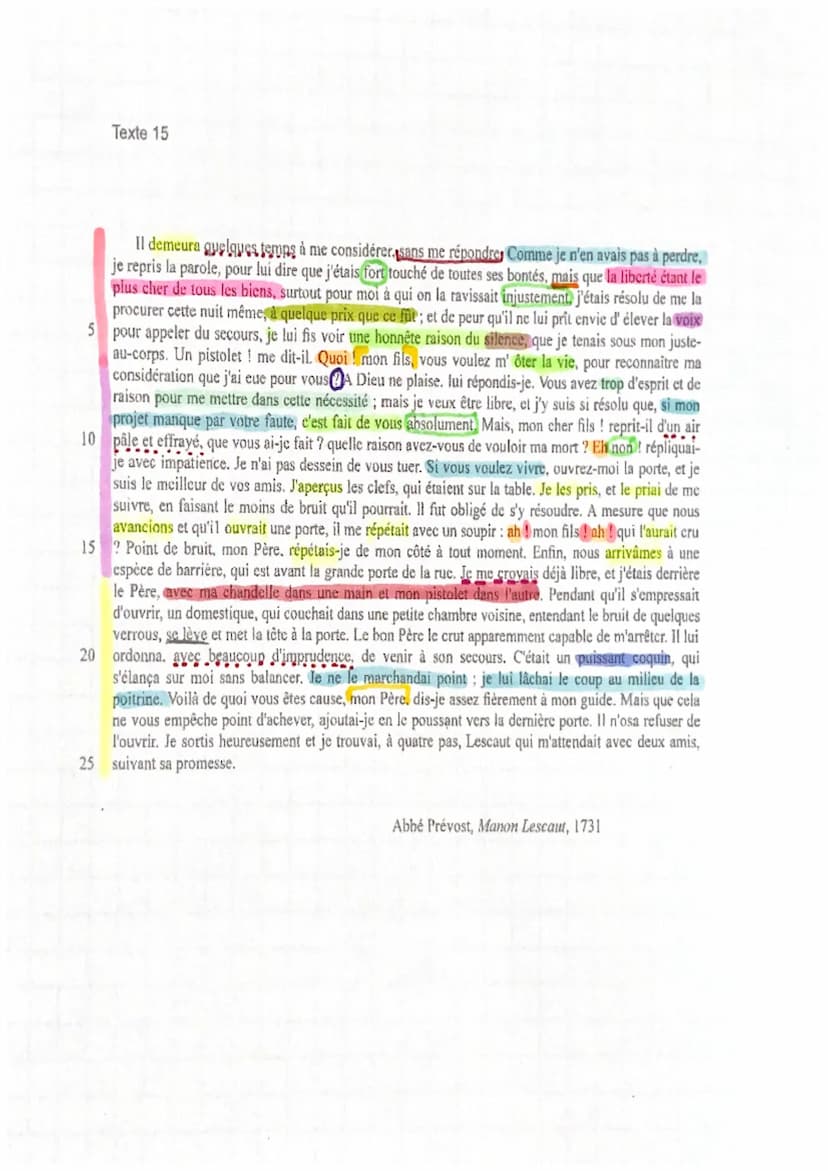 Texte 15
Il demeura quelques temps à me considérer, sans me répondre. Comme je n'en avais pas à perdre,
je repris la parole, pour lui dire que j'étais fort touché de toutes ses bontés, mais que la liberté étant le
plus cher de tous les biens, surtout pour moi à qui on la ravissait injustement, j'étais résolu de me la
procurer cette nuit même, à quelque prix que ce fût ; et de peur qu'il ne lui prît envie d' élever la voix
5 pour appeler du secours, je lui fis voir une honnête raison du silence, que je tenais sous mon juste-
au-corps. Un pistolet ! me dit-il. Quoi ! mon fils, vous voulez m' ôter la vie, pour reconnaître ma
considération que j'ai eue pour vous ? A Dieu ne plaise. lui répondis-je. Vous avez trop d'esprit et de
raison pour me mettre dans cette nécessité ; mais je veux être libre, et j'y suis si résolu que, si mon
projet manque par votre faute, c'est fait de vous absolument. Mais, mon cher fils ! reprit-il d'un air
10 pâle et effrayé, que vous ai-je fait ? quelle raison avez-vous de vouloir ma mort ? Eh non ! répliquai-
je avec impatience. Je n'ai pas dessein de vous tuer. Si vous voulez vivre, ouvrez-moi la porte, et je
suis le meilleur de vos amis. J'aperçus les clefs, qui étaient sur la table. Je les pris, et le priai de me
suivre, en faisant le moins de bruit qu'il pourrait. Il fut obligé de s'y résoudre. A mesure que nous
avancions et qu'il ouvrait une porte, il me répétait avec un soupir : ah ! mon fils ! ah ! qui l'aurait cru
15 ? Point de bruit, mon Père, répétais-je de mon côté à tout moment. Enfin, nous arrivâmes à une
espèce de barrière, qui est avant la grande porte de la rue. Je me croyais déjà libre, et j'étais derrière
le Père, avec ma chandelle dans une main et mon pistolet dans l'autre. Pendant qu'il s'empressait
d'ouvrir, un domestique, qui couchait dans une petite chambre voisine, entendant le bruit de quelques
verrous, se lève et met la tête à la porte. Le bon Père le crut apparemment capable de m'arrêter. Il lui
20 ordonna, avec beaucoup d'imprudence, de venir à son secours. C'était un puissant coquin, qui
s'élança sur moi sans balancer. Je ne le marchandai point ; je lui lâchai le coup au milieu de la
poitrine. Voilà de quoi vous êtes cause, mon Père, dis-je assez fièrement à mon guide. Mais que cela
ne vous empêche point d'achever, ajoutai-je en le poussant vers la dernière porte. Il n'osa refuser de
l'ouvrir. Je sortis heureusement et je trouvai, à quatre pas, Lescaut qui m'attendait avec deux amis,
25 suivant sa promesse.
Abbé Prévost, Manon Lescaut, 1731